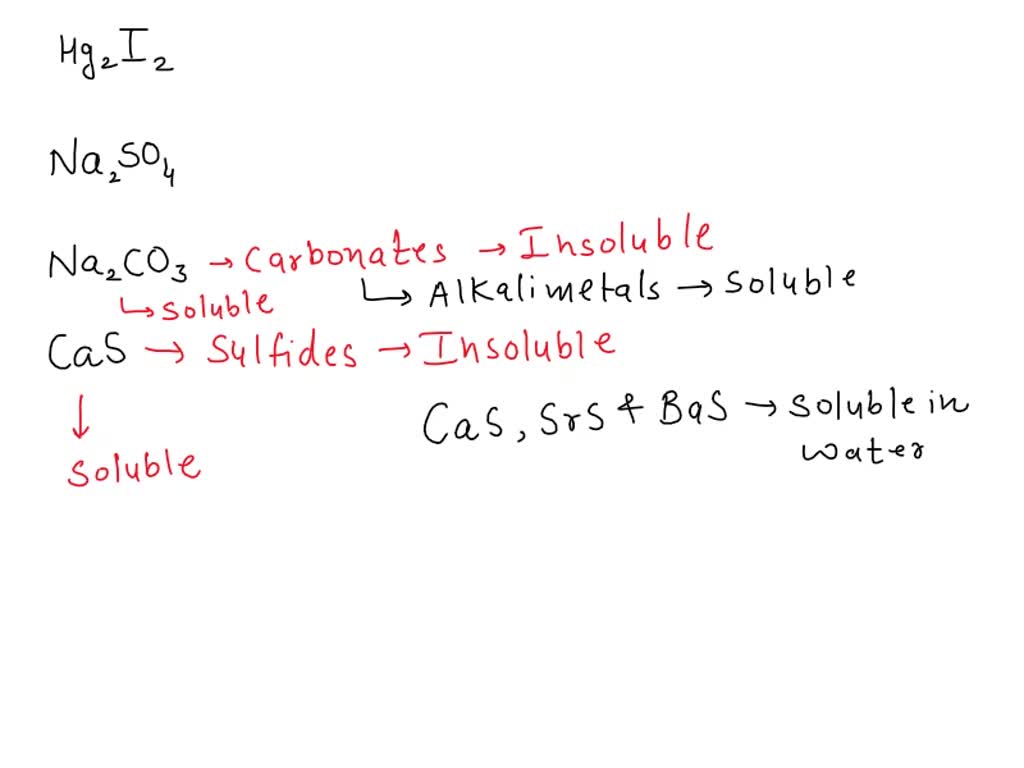 Hg₂I₂
Na₂SO₄
Na₂CO₃ → Carbonates → Insoluble
↳ Soluble ↳ Alkalimetals → Soluble
CaS → Sulfides → Insoluble
↓ CaS, SrS & BaS → Soluble in
Soluble water